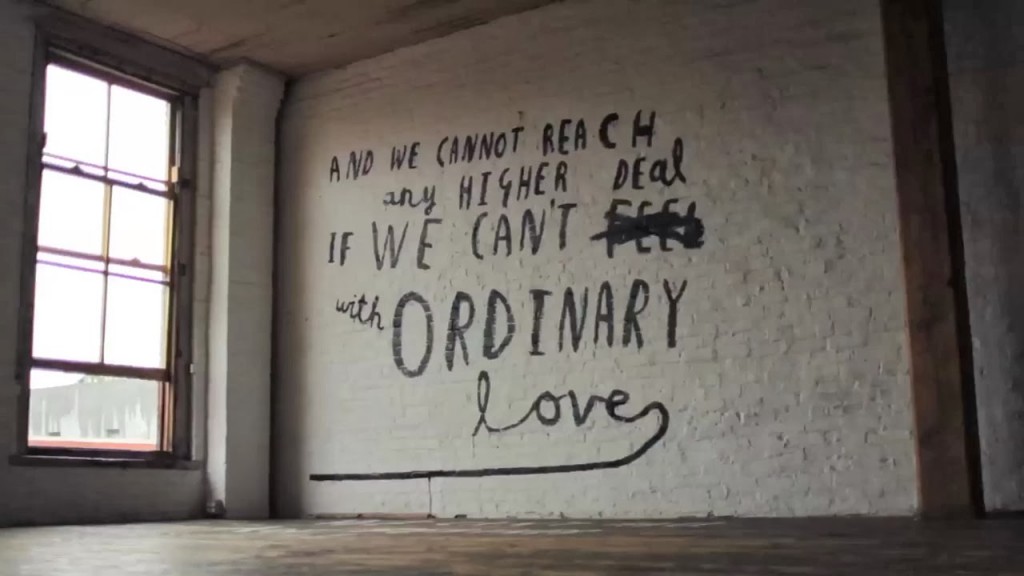 AND WE CANNOT REACH
any HIGHER DEal
IF WE CAN'T FEEL
with ORDINARY
love